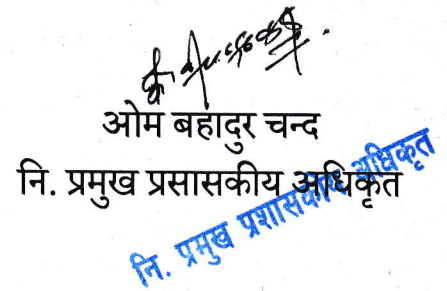 ओम बहादुर चन्द
नि. प्रमुख प्रसासकीय अधिकृत
नि. प्रमुख प्रशासकीय अधिकृत